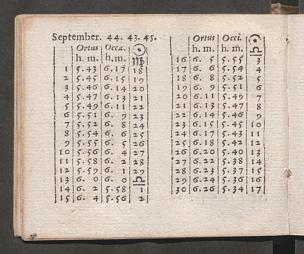 September. 44. 43. 45.
Ortus Occa. ☉
h. m. h. m. ♍
1 5. 43 6. 17 18
2 5. 45 6. 15 19
3 5. 46 6. 14 20
4 5. 47 6. 13 21
5 5. 49 6. 11 22
6 5. 51 6. 9 23
7 5. 52 6. 8 24
8 5. 54 6. 6 25
9 5. 55 6. 5 26
10 5. 56 6. 4 27
11 5. 58 6. 2 28
12 5. 59 6. 1 29
13 6. 0 6. 0 ♎
14 6. 2 5. 58 1
15 6. 4 5. 56 2
Ortus Occi. ☉
h. m. h. m. ♎
16 6. 5 5. 55 3
17 6. 6 5. 54 4
18 6. 8 5. 52 5
19 6. 9 5. 51 6
20 6. 11 5. 49 7
21 6. 12 5. 48 8
22 6. 14 5. 46 9
23 6. 15 5. 45 10
24 6. 17 5. 43 11
25 6. 18 5. 42 12
26 6. 20 5. 40 13
27 6. 22 5. 38 14
28 6. 23 5. 37 15
29 6. 24 5. 36 16
30 6. 26 5. 34 17